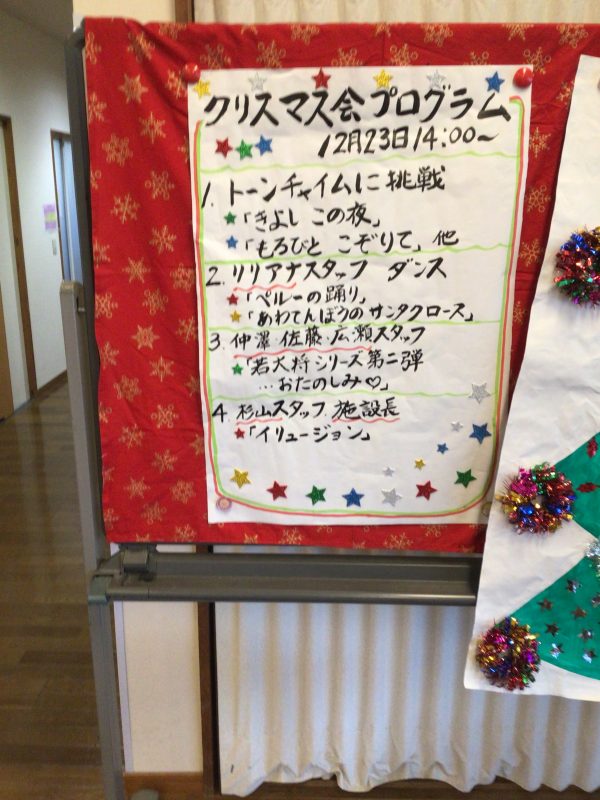 クリスマス会プログラム
12月23日14:00~
1. トーンチャイムに挑戦
★「きよしこの夜」
★「もろびとこぞりて」他
2. リリアナスタッフ ダンス
★「ペルーの踊り」
★「あわてんぼうのサンタクロース」
3. 仲澤 佐藤 広瀬スタッフ
★「若大将シリーズ第二弾
…おたのしみ♡」
4. 杉山スタッフ. 施設長
★「イリュージョン」